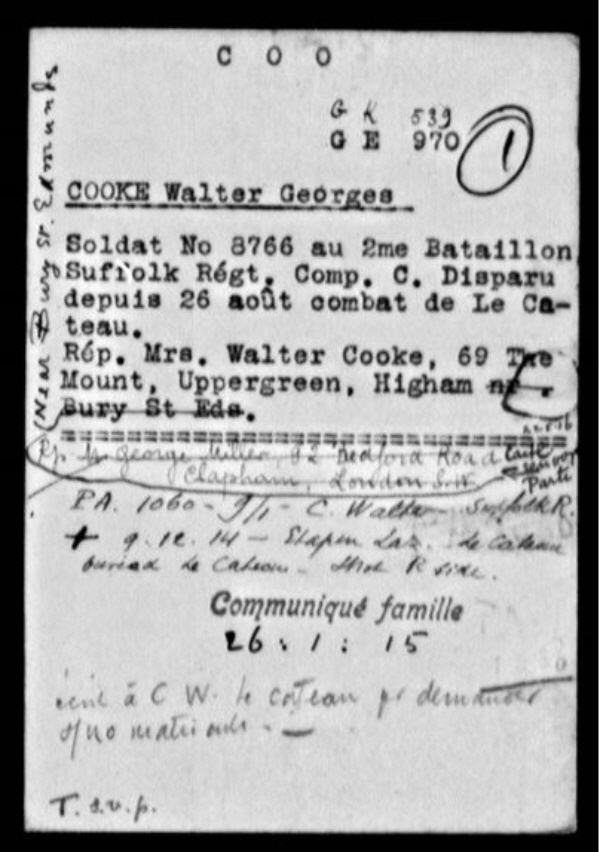 C O O
G K 539
G E 970
1
COOKE Walter Georges
Soldat No 8766 au 2me Bataillon
Suffolk Régt. Comp. C. Disparu
depuis 26 août combat de Le Ca-
teau.
Rép. Mrs. Walter Cooke, 69 The
Mount, Uppergreen, Higham nr.
Bury St Eds.
Near Bury St. Edmunds
Rp Mr George Miller, 92 Bedford Road
Clapham, London S.W.
PA. 1060 - 9/1 - C. Walter - Suffolk R.
+ 9.12.14 - Etapen Laz. Le Cateau
buried Le Cateau - R side.
Communiqué famille
26 : 1 : 15
écrit à C W. Le Cateau pr demander
s/no matricule. —
T. s.v.p.